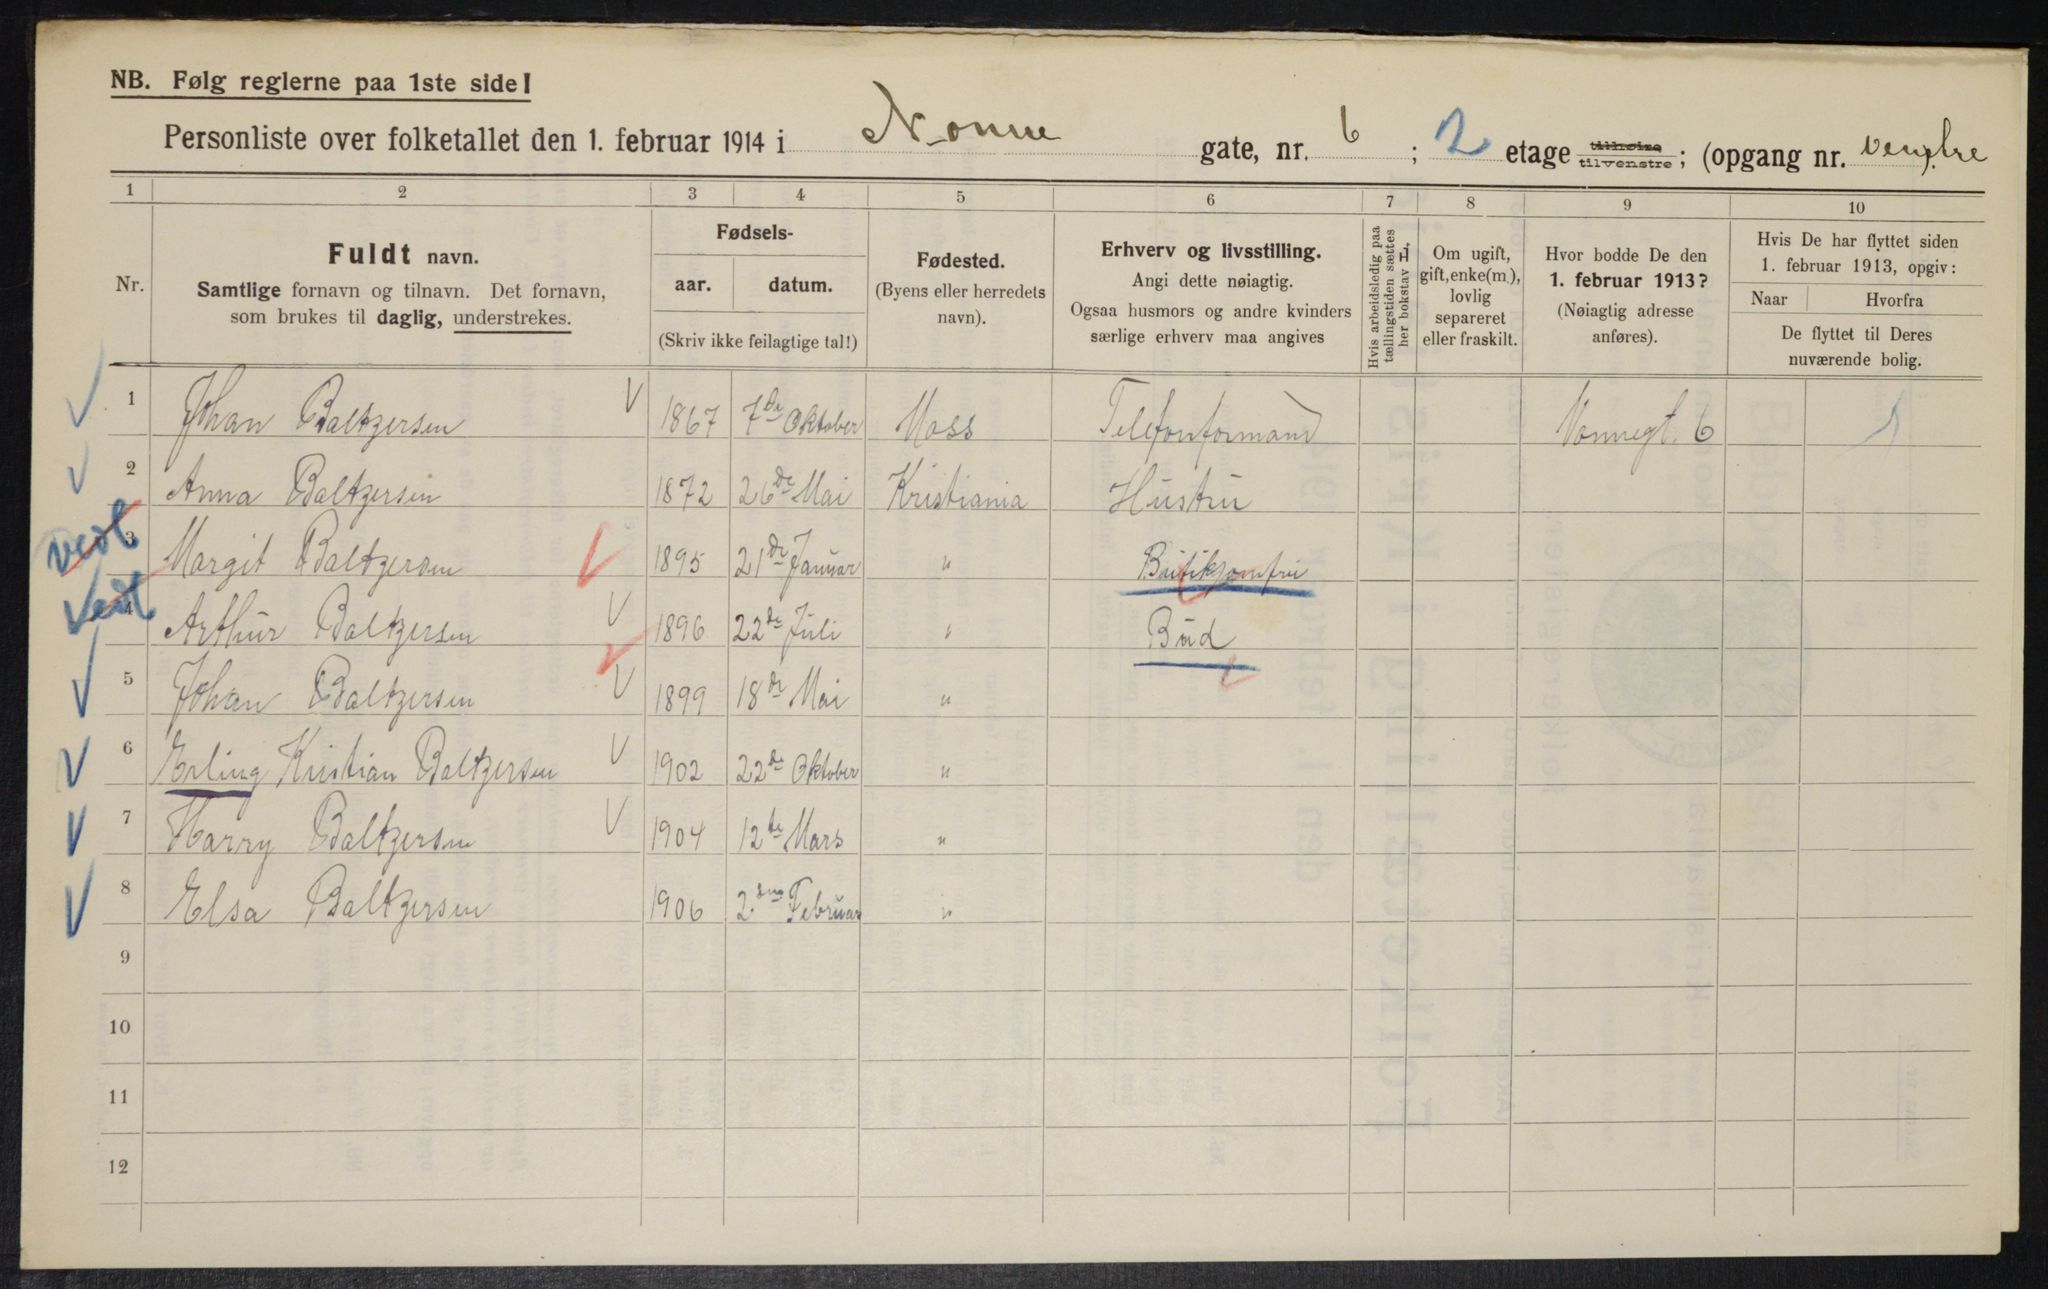 NB. Følg reglerne paa 1ste side!
Personliste over folketallet den 1. februar 1914 i Nonne gate, nr. 6 ; 2 etage tilhøire tilvenstre ; (opgang nr. venstre ).
1 2 3 4 5 6 7 8 9 10
Nr.
Fuldt navn.
Samtlige fornavn og tilnavn. Det fornavn,
som brukes til daglig, understrekes.
Fødsels-
aar. datum.
(Skriv ikke feilagtige tal!)
Fødested.
(Byens eller herredets
navn).
Erhverv og livsstilling.
Angi dette nøiagtig.
Ogsaa husmors og andre kvinders
særlige erhverv maa angives
Hvis arbeidsledig paa
tællingstiden sættes
her bokstav L.
Om ugift,
gift, enke(m.),
lovlig
separeret
eller fraskilt.
Hvor bodde De den
1. februar 1913?
(Nøiagtig adresse
anføres).
Hvis De har flyttet siden
1. februar 1913, opgiv:
Naar Hvorfra
De flyttet til Deres
nuværende bolig.
1 Johan Baltzersen 1867 7de Oktober Moss Telefonformand Nonnegt. 6
2 Anna Baltzersen 1872 26de Mai Kristiania Hustru
3 Margit Baltzersen 1895 21de Januar " Butikjomfru
4 Arthur Baltzersen 1896 22de Juli " Bud
5 Johan Baltzersen 1899 18de Mai "
6 Erling Kristian Baltzersen 1902 22de Oktober "
7 Harry Baltzersen 1904 12te Mars "
8 Elsa Baltzersen 1906 2den Februar "
9
10
11
12